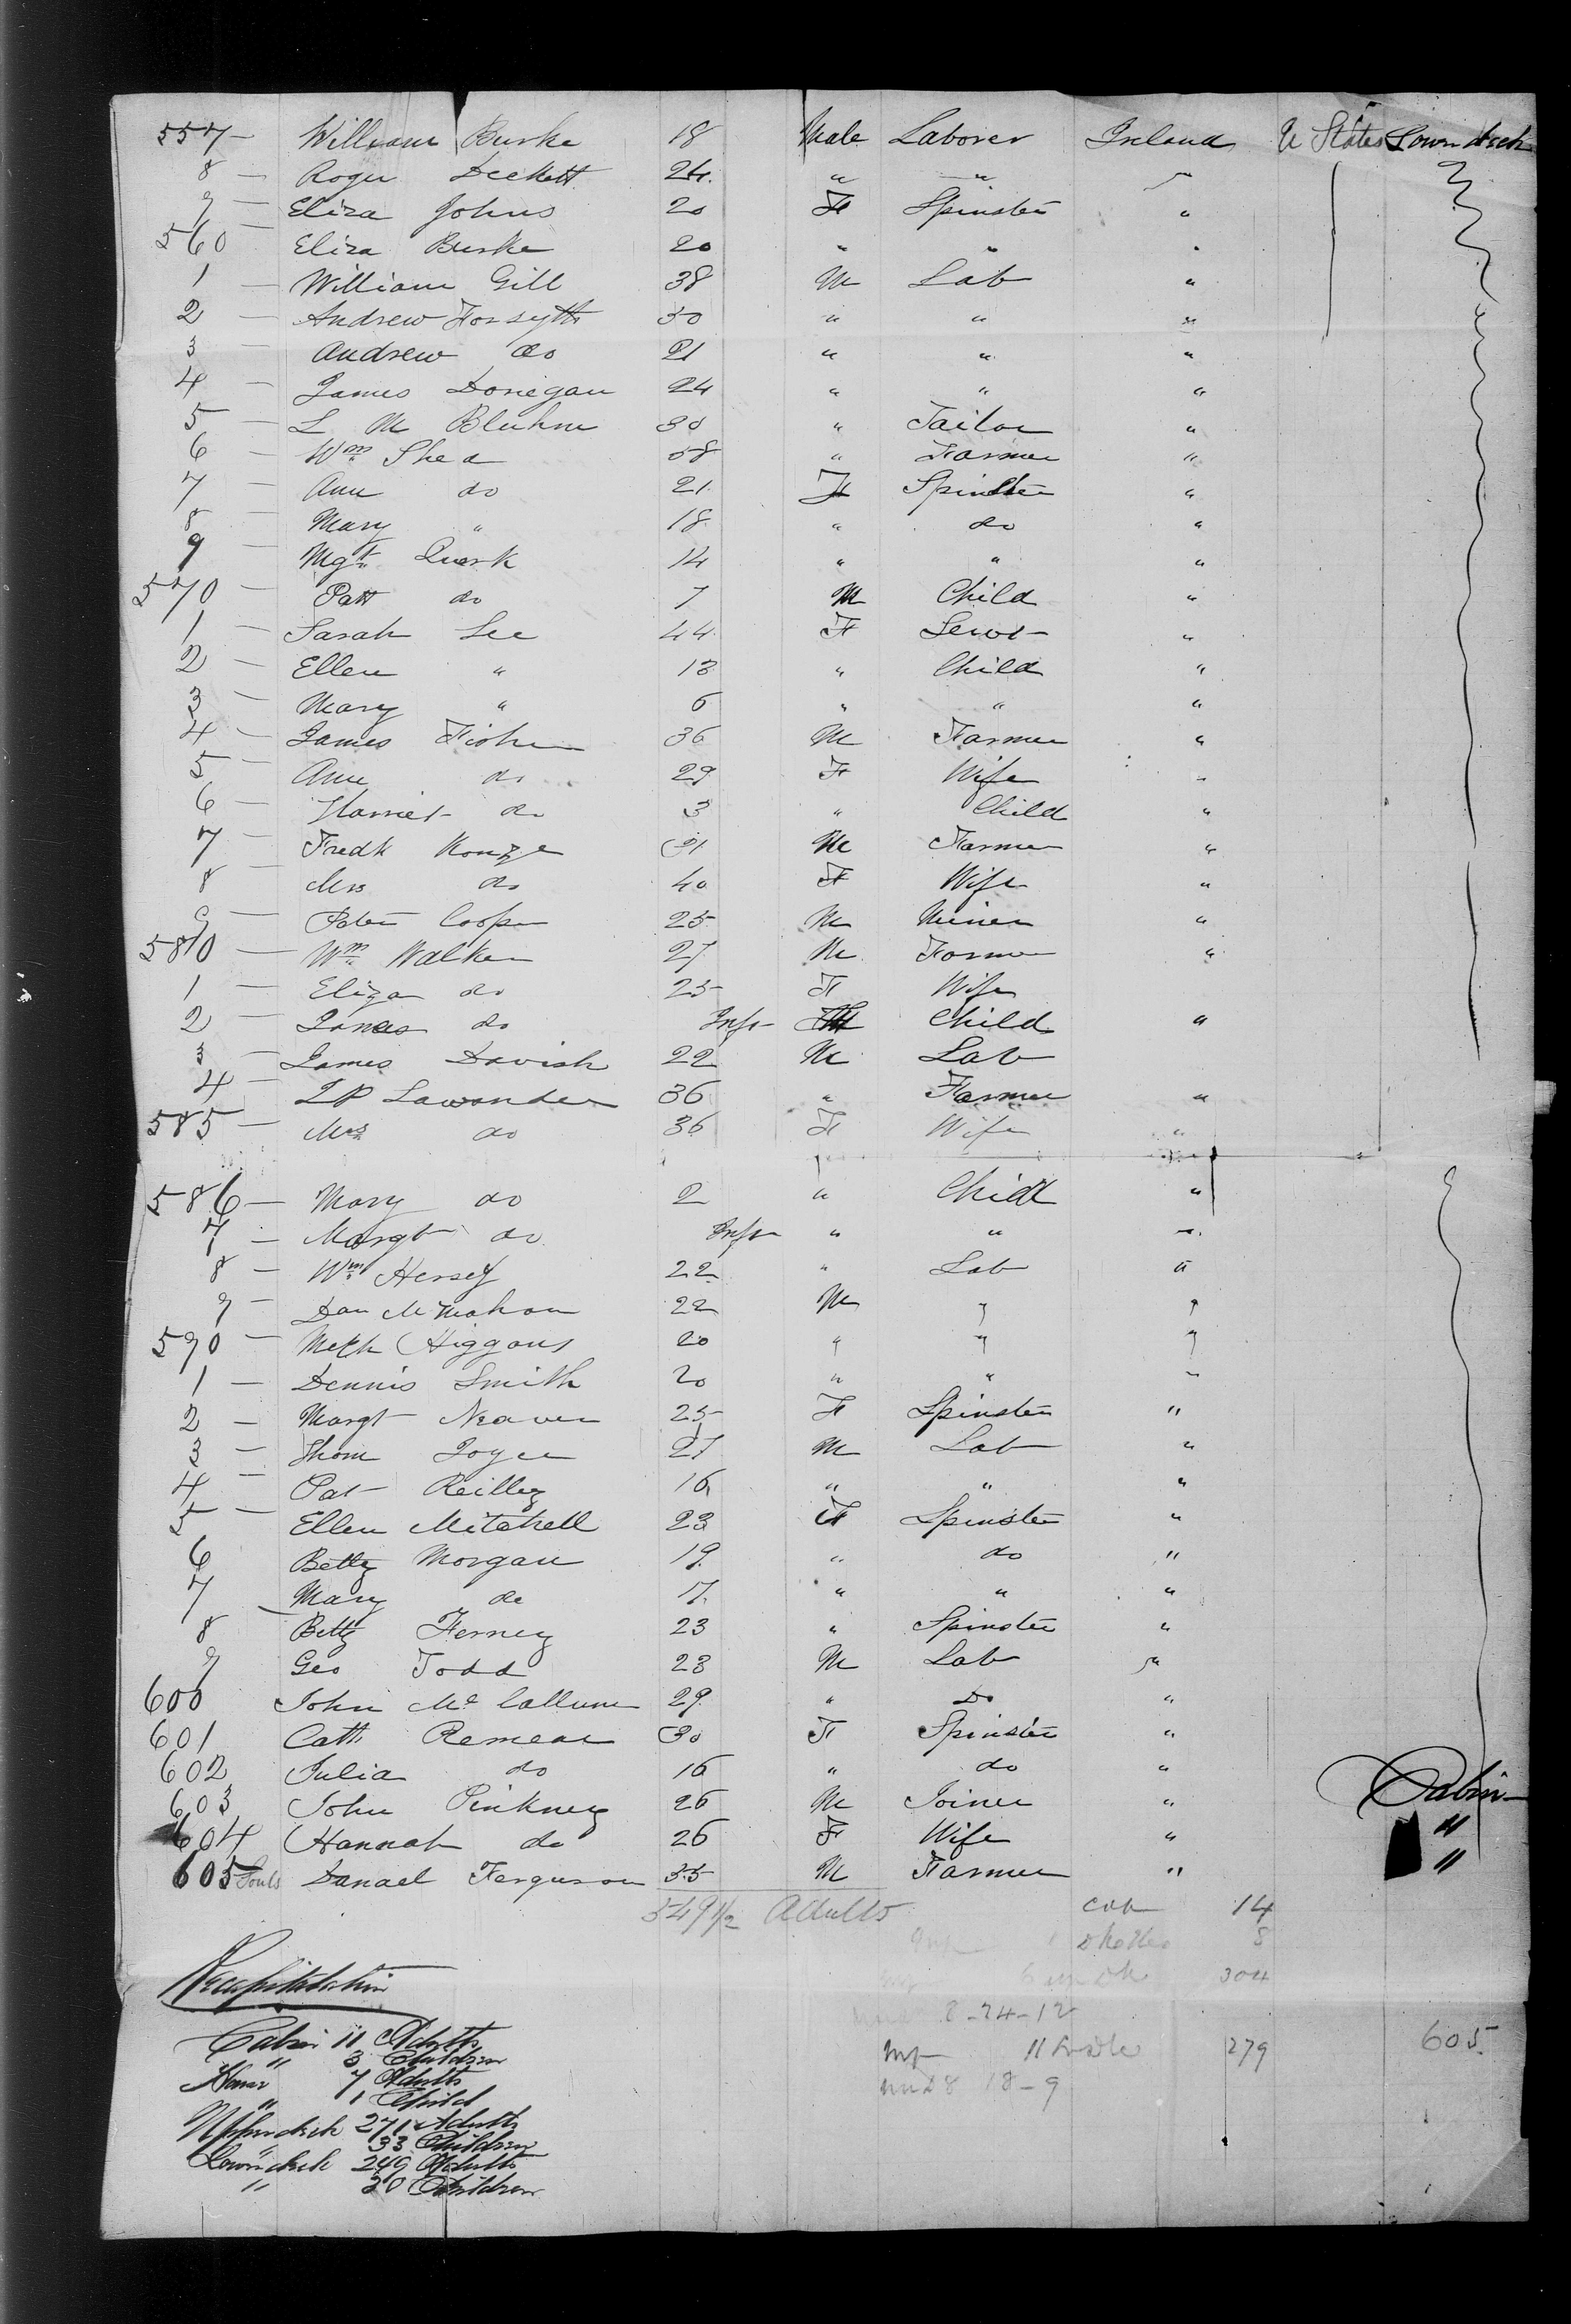 557 – William Burke 18 Male Laborer Ireland U States Lower deck
8 – Roger Deckett 24 " " "
9 – Eliza Johns 20 F Spinster "
560 – Eliza Burke 20 " " "
1 – William Gill 38 M Lab "
2 – Andrew Forsyth 30 " " "
3 – Andrew do 21 " " "
4 – James Donegan 24 " " "
5 – L M Bluhm 30 " Tailor "
6 – Wm Shea 58 " Farmer "
7 – Ann do 21 F Spinster "
8 – Mary " 18 " do "
9 – Mgt Quirk 14 " " "
570 – Patt do 7 M Child "
1 – Sarah Lee 44 F Servt "
2 – Ellen " 13 " Child "
3 – Mary " 6 " " "
4 – James Fisher 36 M Farmer "
5 – Ann do 29 F Wife "
6 – Harriet do 3 " Child "
7 – Fredk 31 M Farmer "
8 – Mrs do 40 F Wife "
9 – Peter Cooper 25 M Miner "
580 – Wm Walker 27 M Farmer "
1 – Eliza do 25 F Wife
2 – James do Inft Child "
3 – James Davish 22 M Lab
4 – Lawander 36 " Farmer "
585 – Mrs do 36 F Wife "
586 – Mary do 2 " Child "
7 – Margt do Inft " " "
8 – Wm Hersey 22 " Lab "
9 – Dan McMahon 22 M " "
590 – Higgans 20 " " "
1 – Dennis Smith 20 " " "
2 – Margt Neaven 25 F Spinster "
3 – Thom Joyce 27 M Lab "
4 – Pat Reilley 16 " " "
5 – Ellen Mitchell 23 F Spinster "
6 Betty Morgan 19 " do "
7 – Mary do 17 " " "
8 Betty Ferney 23 " Spinster "
9 Geo Todd 23 M Lab "
600 John Mc Callum 29 " Do "
601 Cath Remear 30 F Spinster "
602 Julia do 16 " do "
603 John Pinkney 26 M Joiner " Cabin
604 Hannah do 26 F Wife " "
605 Souls Danael Ferguson 35 M Farmer " "
549 1/2 Adults Cab 14
8
304
8-24-12
279 605
18-9
Recapitulation
Cabin 11 Adults
" 3 Children
7 Adults
" 1 Child
Upper deck 271 Adults
" 33 Children
Lower deck 249 Adults
" 30 Children